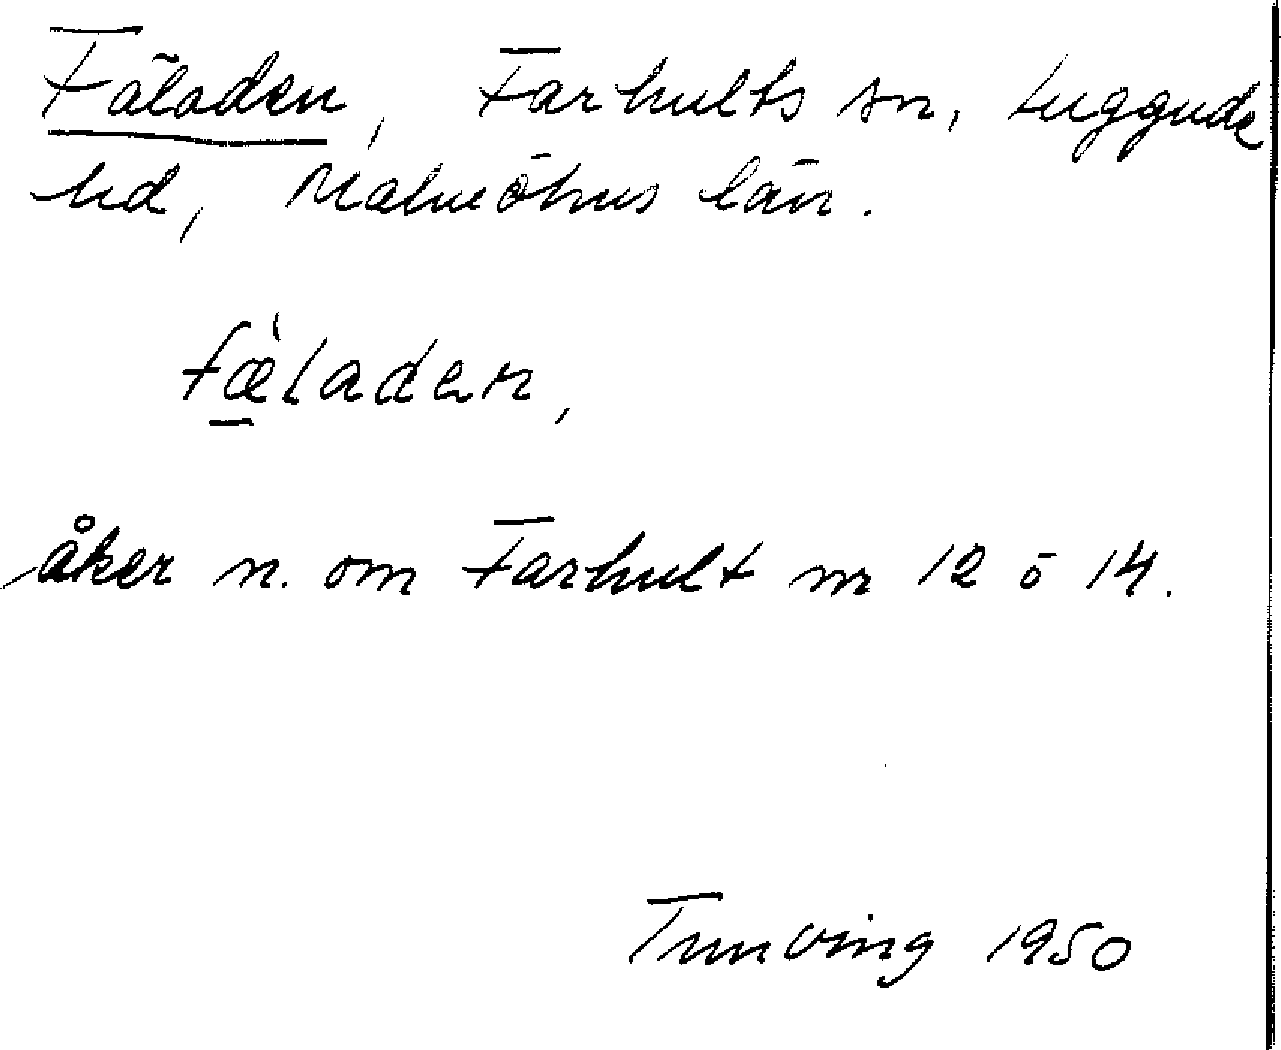 Fäladen, Farhults sn, Luggude
hd, Malmöhus län.
fæ̱̀laden,
åker n. om Farhult nr 12 o 14.
Tunving 1950